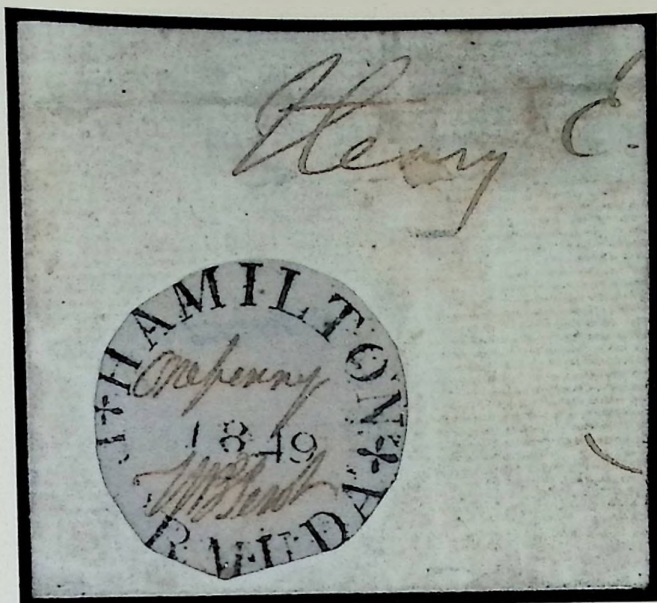 Henry E.
HAMILTON
One penny
1849
W B Perot
BERMUDA